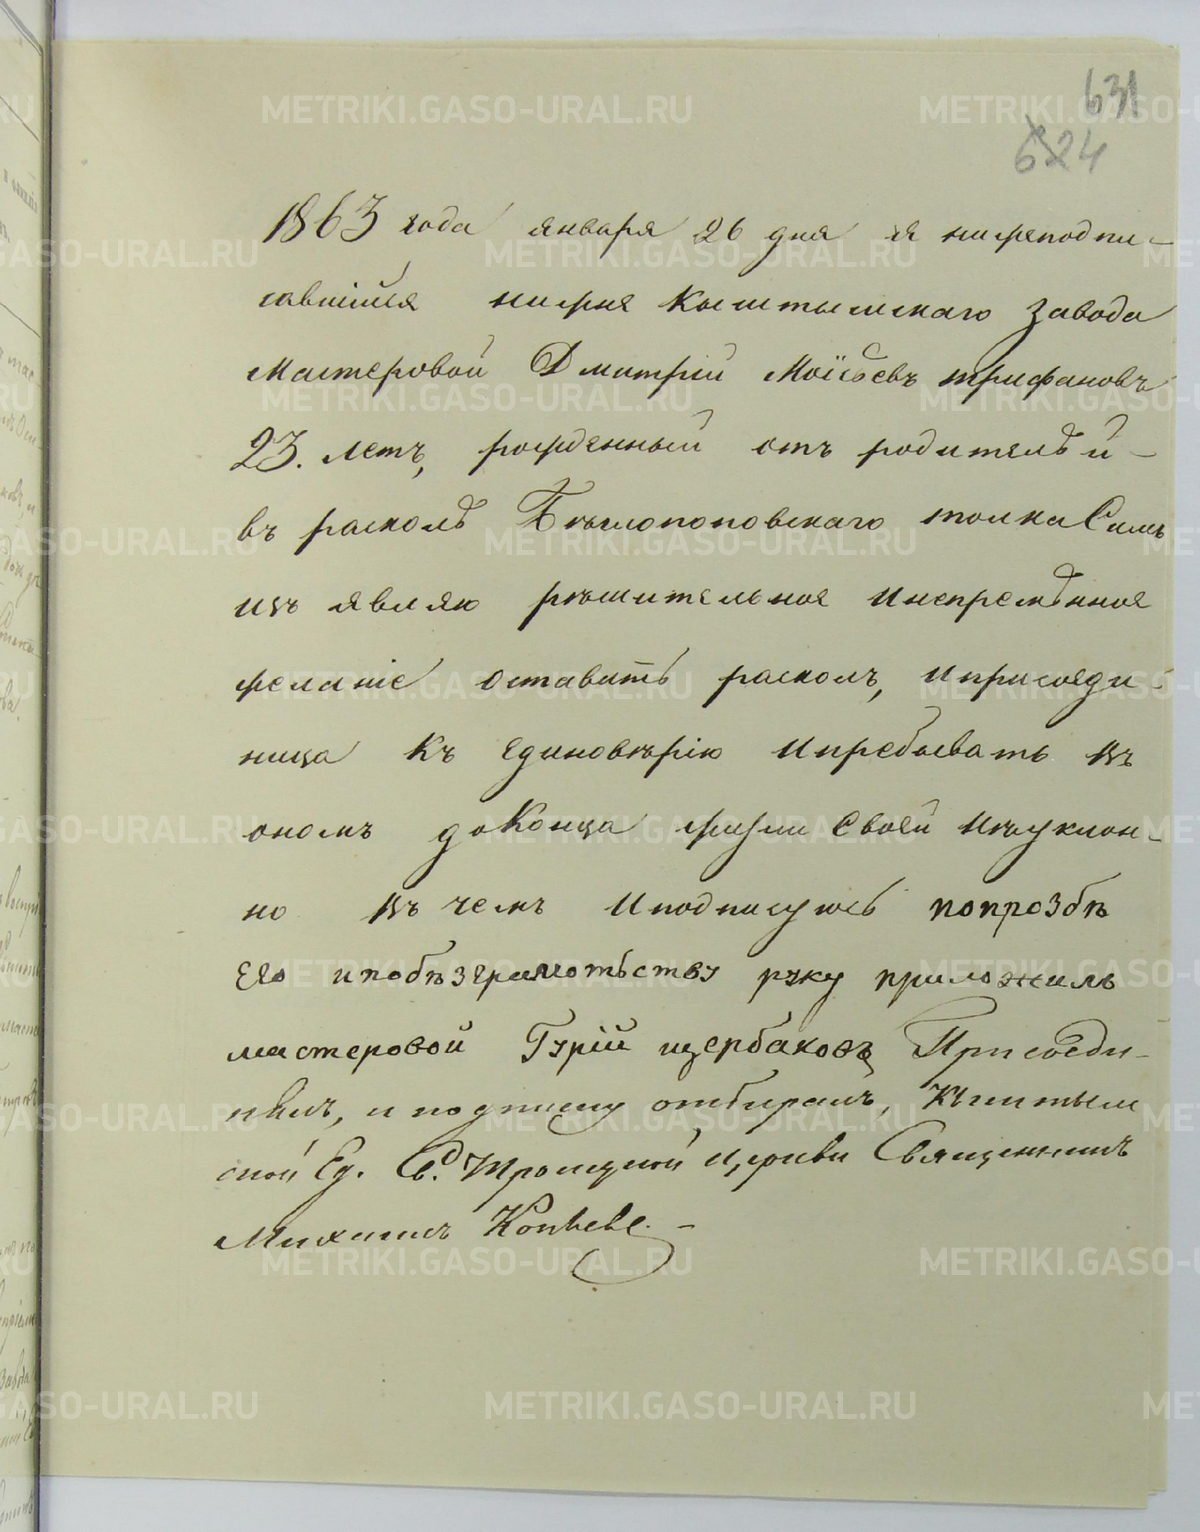 631
624
1863 года января 26 дня я нижеподпи-
савшійся нижне Кыштымскаго завода
Мастеровой Дмитрій Моісѣевъ трифановъ
23. летъ, рожденный отъ родителѣй -
въ расколѣ Бѣглопоповскаго толка Симъ
изъявляю рѣшительное инепремѣнное
желаніе оставить расколъ, иприсоеди-
ница къ единовѣрію ипребывать въ
ономъ доконца жизни своей неуклон-
но въ чемъ иподписуюсь попрозбѣ
Его ипобѣзграмотьству руку приложилъ
мастеровой Гурій щербаковъ Присоеди-
нялъ, и подписку отбиралъ, Кыштым
ской Ед. Св. Троицкой Церкви Священникъ
Михаилъ Копьевъ. -
METRIKI.GASO-URAL.RU